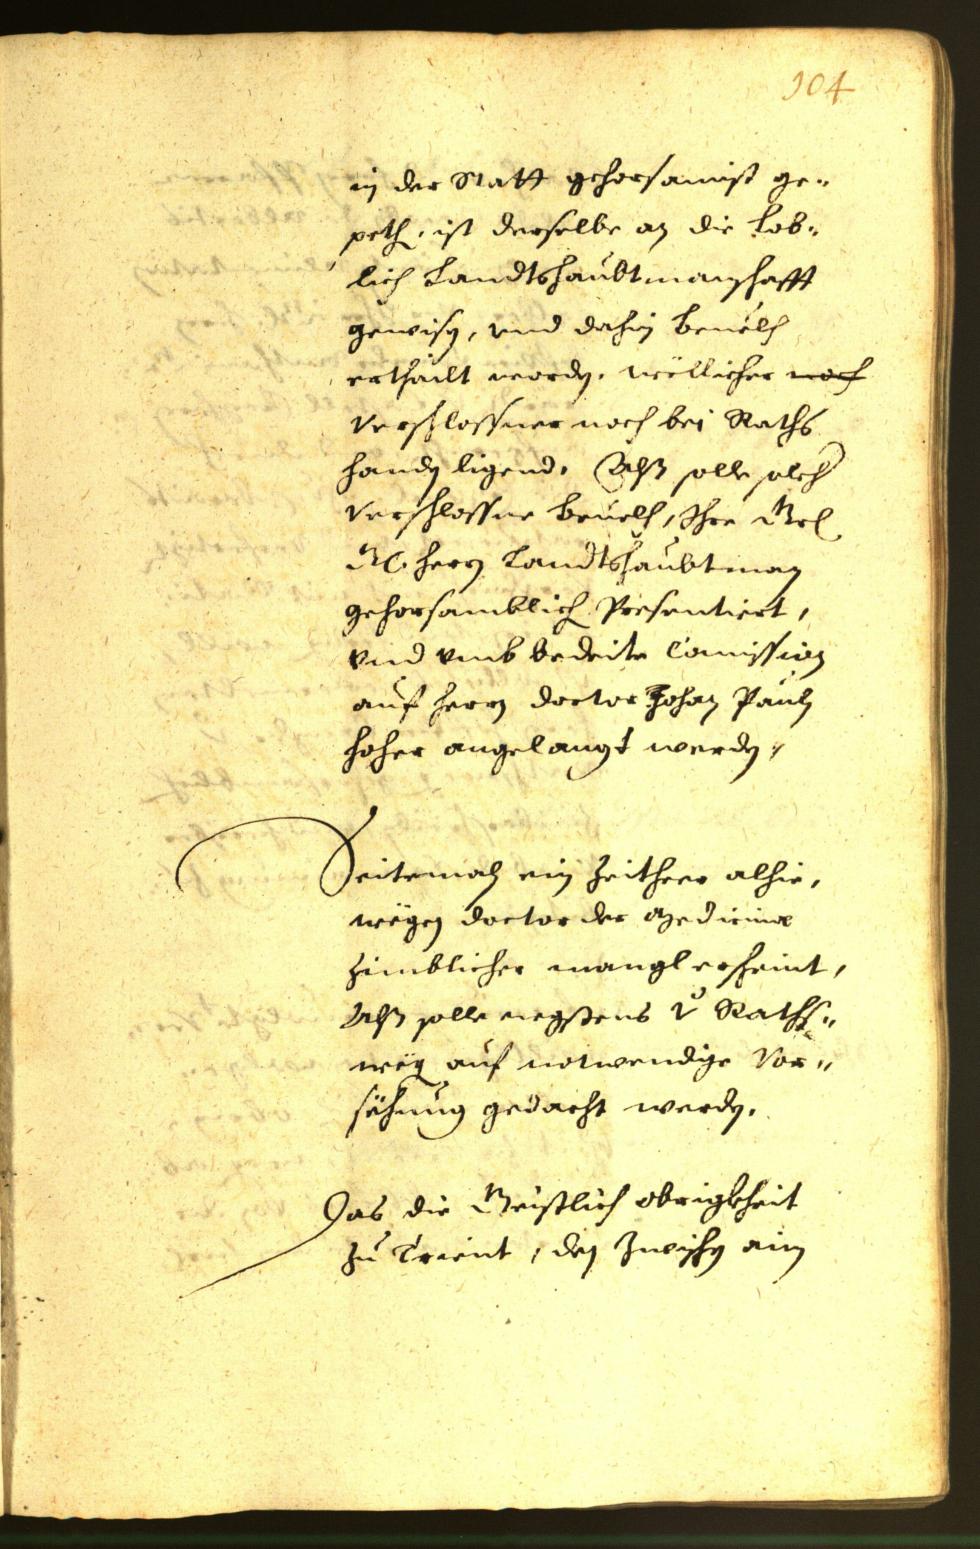 104
in der Statt gehorsamist ge-
peth, ist derselbe an die Lob-
lich Landtshaubtmanschafft
gewisen, und dahin Beuelch
erthailt worden. wöllicher noch
verschlossner noch bei Raths
handen ligend. Alß solle solch
verschlossne Beuelch, Ihre
herrn Landtshaubtman
gehorsamblich Presentiert,
und umb bedeite Comission
auf herrn doctor Johan Paul
hoher angelangt werden.
Seitemaln ein Zeitheer alhie,
wegen doctor der Medicinae
Zimblicher mangl erscheint,
Alß solle negstens Raths-
weg auf notwendige Vor-
sehung gedacht werden.
Das die Geistlich obrigkheit
Zu Trient, den Zwischen ain